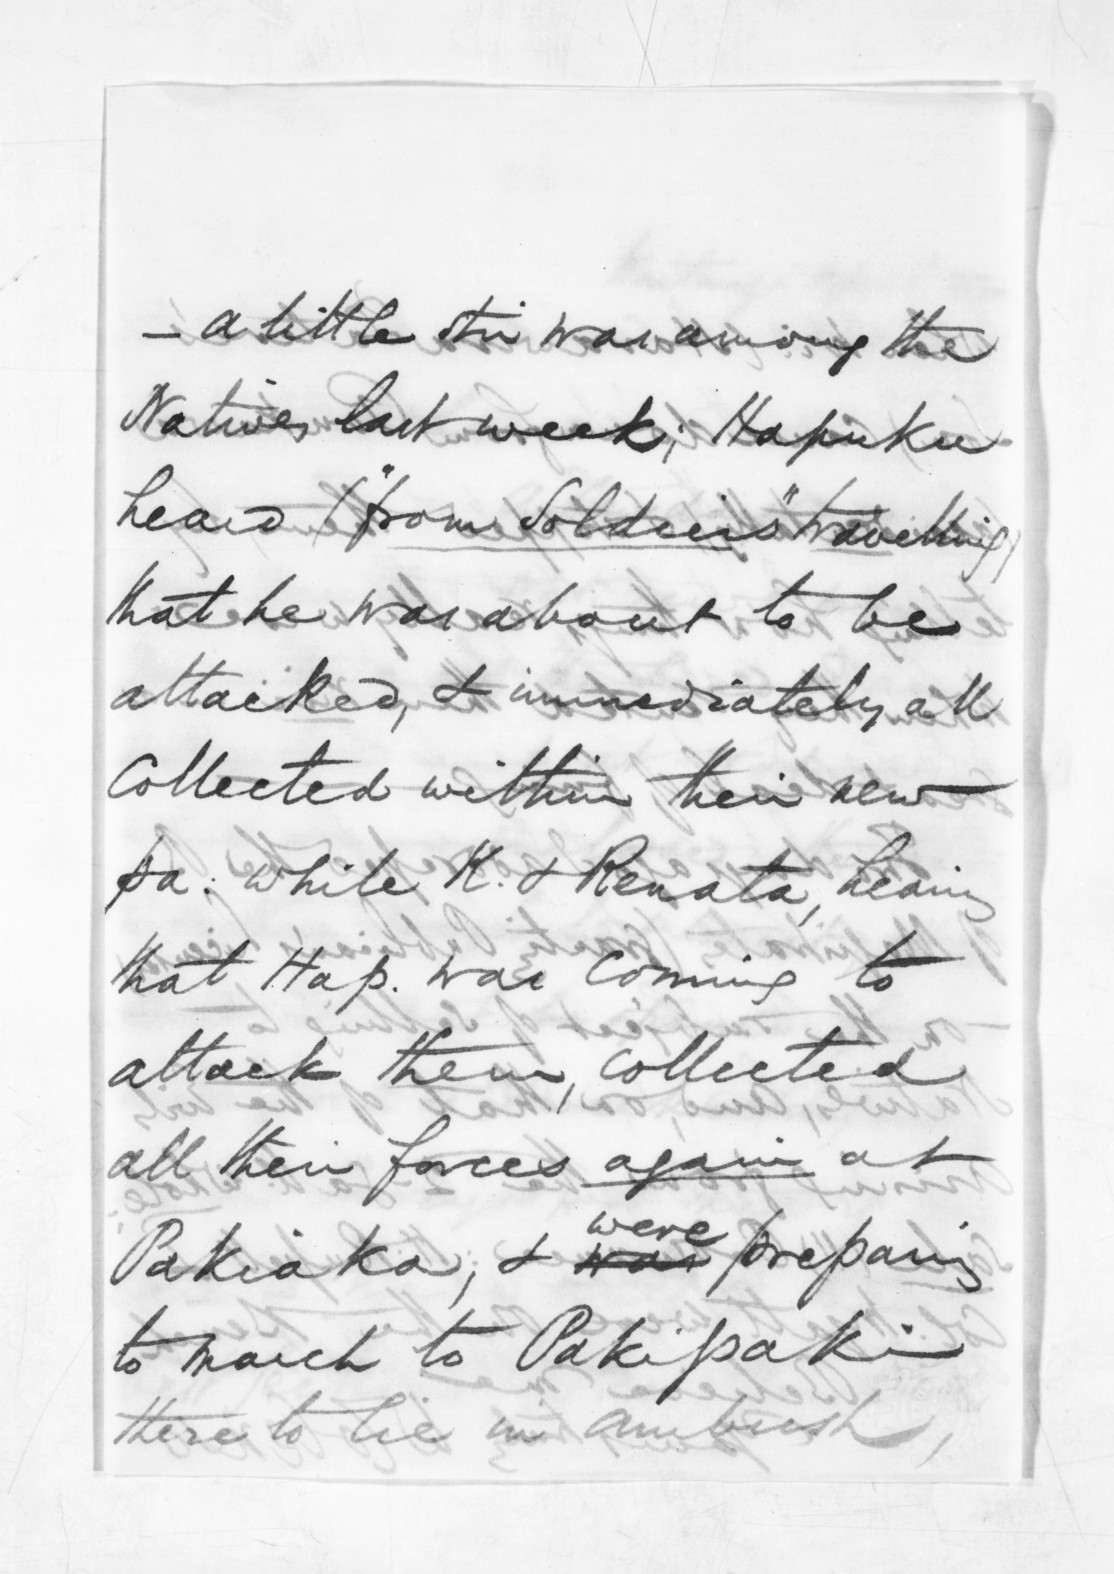 — a little stir was among the
Natives last week; Hapuku
heard ("from Soldiers" travelling)
that he was about to be
attacked, & immediately all
collected within their new
pa: while K. & Renata, hearing
that Hap. was coming to
attack them, collected
all their forces again at
Pakiaka; & were was preparing
to march to Pakipaki
there to lie in ambush,